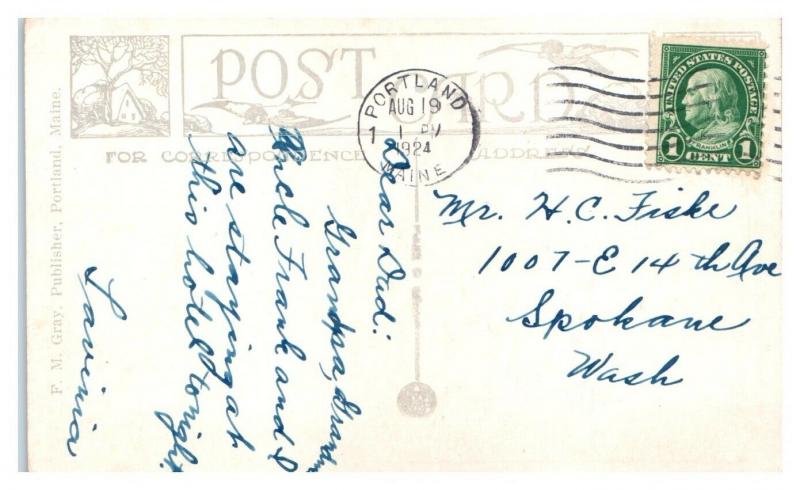 POST CARD
FOR CORRESPONDENCE
ADDRESS
PORTLAND
AUG 19
1 PM
1924
MAINE
UNITED STATES POSTAGE
FRANKLIN
1 CENT 1
F. M. Gray, Publisher, Portland, Maine.
Dear Dad:
Grandpa,
Uncle Frank and I
are staying at
this hotel tonight.
Lavinia
Mr. H. C. Fiske
1007-E 14th Ave
Spokane
Wash